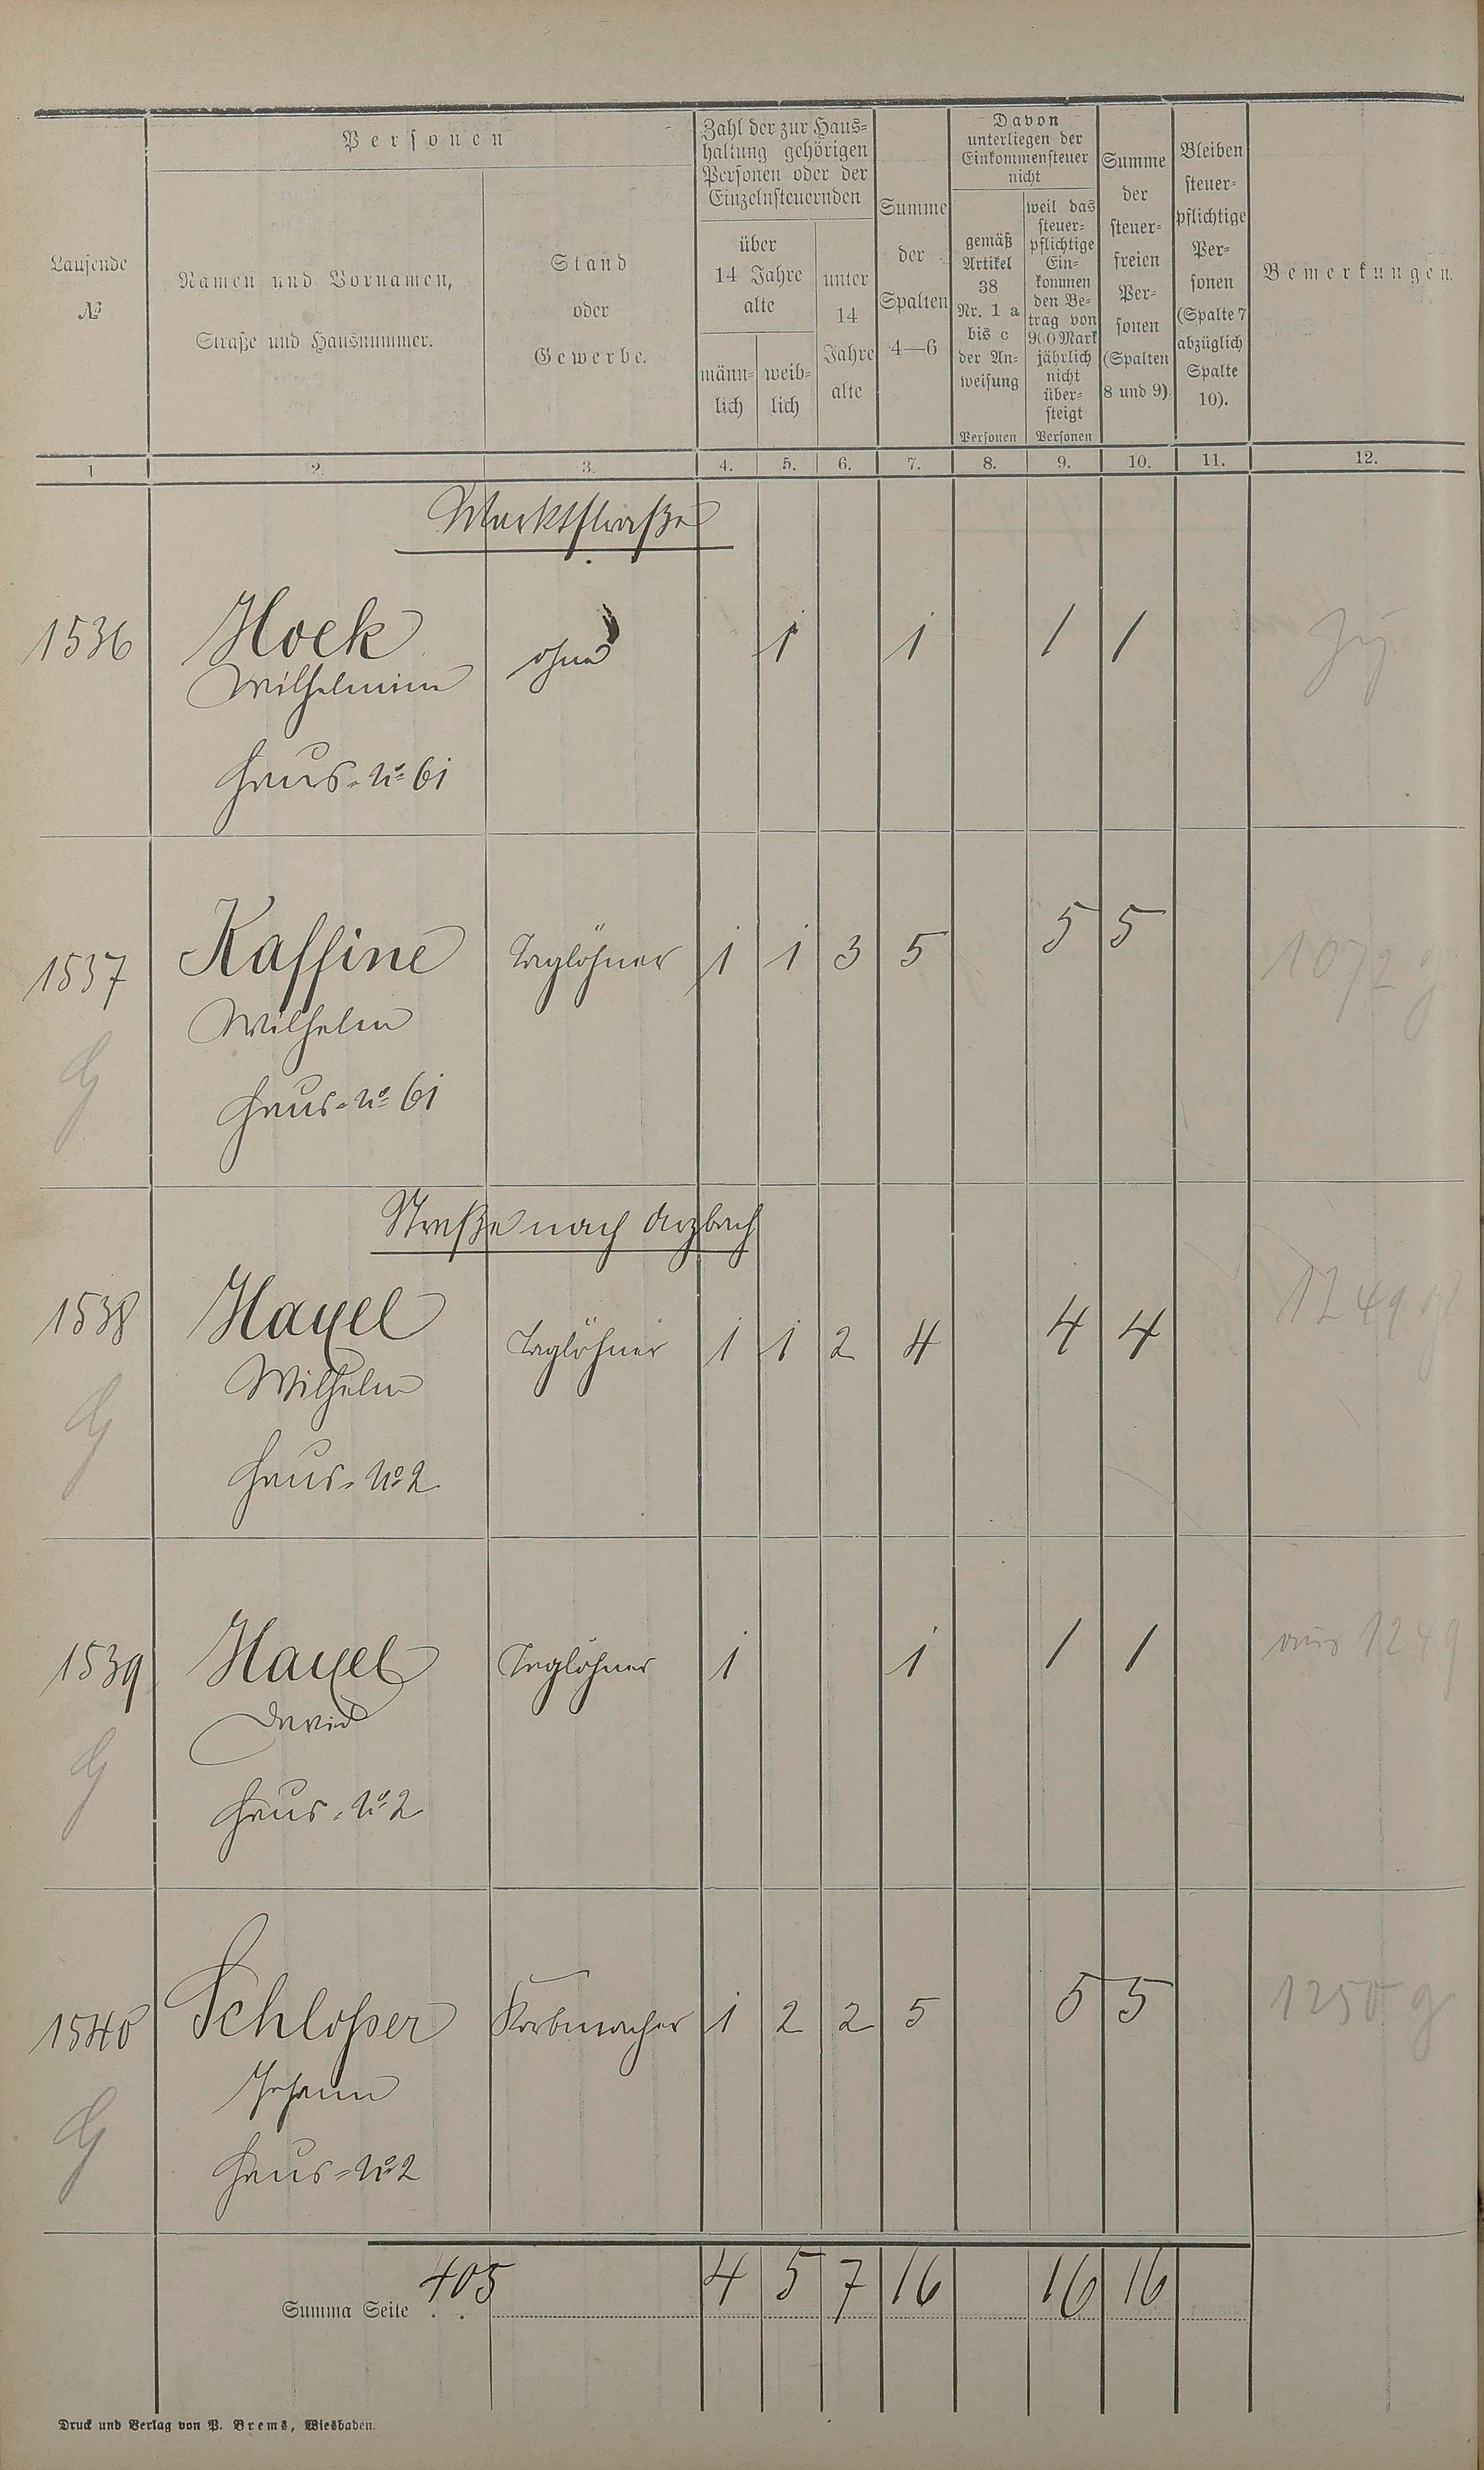 Laufende
№
Personen
Namen und Vornamen,
Straße und Hausnummer.
Stand
oder
Gewerbe.
Zahl der zur Haus-
haltung gehörigen
Personen oder der
Einzelnsteuernden
über
14 Jahre
alte
männ-
lich
weib-
lich
unter
14
Jahre
alte
Summe
der
Spalten
4—6
Davon
unterliegen der
Einkommensteuer
nicht
gemäß
Artikel
38
Nr. 1 a
bis c
der An-
weisung
Personen
weil das
steuer-
pflichtige
Ein-
kommen
den Be-
trag von
900 Mark
jährlich
nicht
über-
steigt
Personen
Summe
der
steuer-
freien
Per-
sonen
(Spalten
8 und 9)
Bleiben
steuer-
pflichtige
Per-
sonen
(Spalte 7
abzüglich
Spalte
10).
Bemerkungen.
1 2. 3. 4. 5. 6. 7. 8. 9. 10. 11. 12.
Marktstraße
1536 Hoek ohne 1 1 1 1
Wilhelmine
Haus-No 61
1537 Kaffine Taglöhner 1 1 3 5 5 5 1072 g
Wilhelm
Haus-No 61
Straße nach Arzbach
1538 Hayel Taglöhner 1 1 2 4 4 4 1249 g
Wilhelm
Haus-No 2
1539 Hayel Taglöhner 1 1 1 1 aus 1249
David
Haus-No 2
1540 Schloßer Korbmacher 1 2 2 5 5 5 1250 g
Johann
Haus-No 2
Summa Seite 405 4 5 7 16 16 16
Druck und Verlag von P. Brems, Wiesbaden.